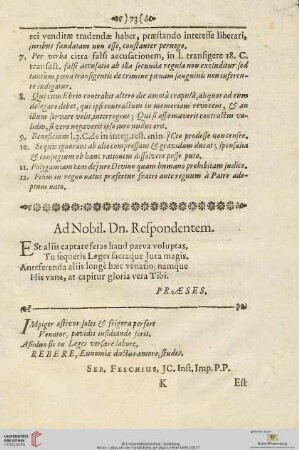 ) 73 (
rei venditæ tradendæ habet, præstando interesse liberari,
juribus fundatam non esse, constanter pernego.
7. Per verba citra falsi accusationem, in l. transigere 18. C.
transact. falsi accusatio ab illa secunda regula non excluditur sed
tantum pœna transigentis de crimine pœnam sanguinis non inferen-
te indigatur.
8. Qui tam Ebrio contrahit altero die amota crapulâ, aliquos ad eum
delegare debet, qui ipsi contractum in memoriam revocent, & an
illum servare velit, interrogent; Qui si affirmaverit contractus va-
lidus, si vero negaverit ipso jure nullus erit.
9. Beneficium l. 2. C. de in integ. rest. min. JCto prodesse non censeo.
10. Si quis ignorans ab alio compressam & gravidam ducat, sponsalia
& conjugium ob hanc rationem dissolvere posse puto.
11. Polygamiam tam de jure Divino quam humano prohibitam judico.
12. Filius in regno natus præfertur fratri ante regnum à Patre ade-
ptum nato.
Ad Nobil. Dn. Respondentem.
Est aliis captare feras haud parva voluptas,
Tu sequeris Leges sacraque Jura magis.
Anteferenda aliis longè hæc venatio: namque
His vana, at capitur gloria vera Tibi.
PRÆSES.
IMpiger æstivos soles & frigora perfert
Venator, pavidis insidiando feris.
Assiduo sis tu Leges versare labore,
REBERE, Eunomiæ doctus amore, studes.
SEB. FESCHIUS, JC. Inst. Imp. P.P.
K Est
UNIVERSITÄTS-
BIBLIOTHEK
HEIDELBERG
© Universitätsbibliothek Heidelberg
Baden-Württemberg